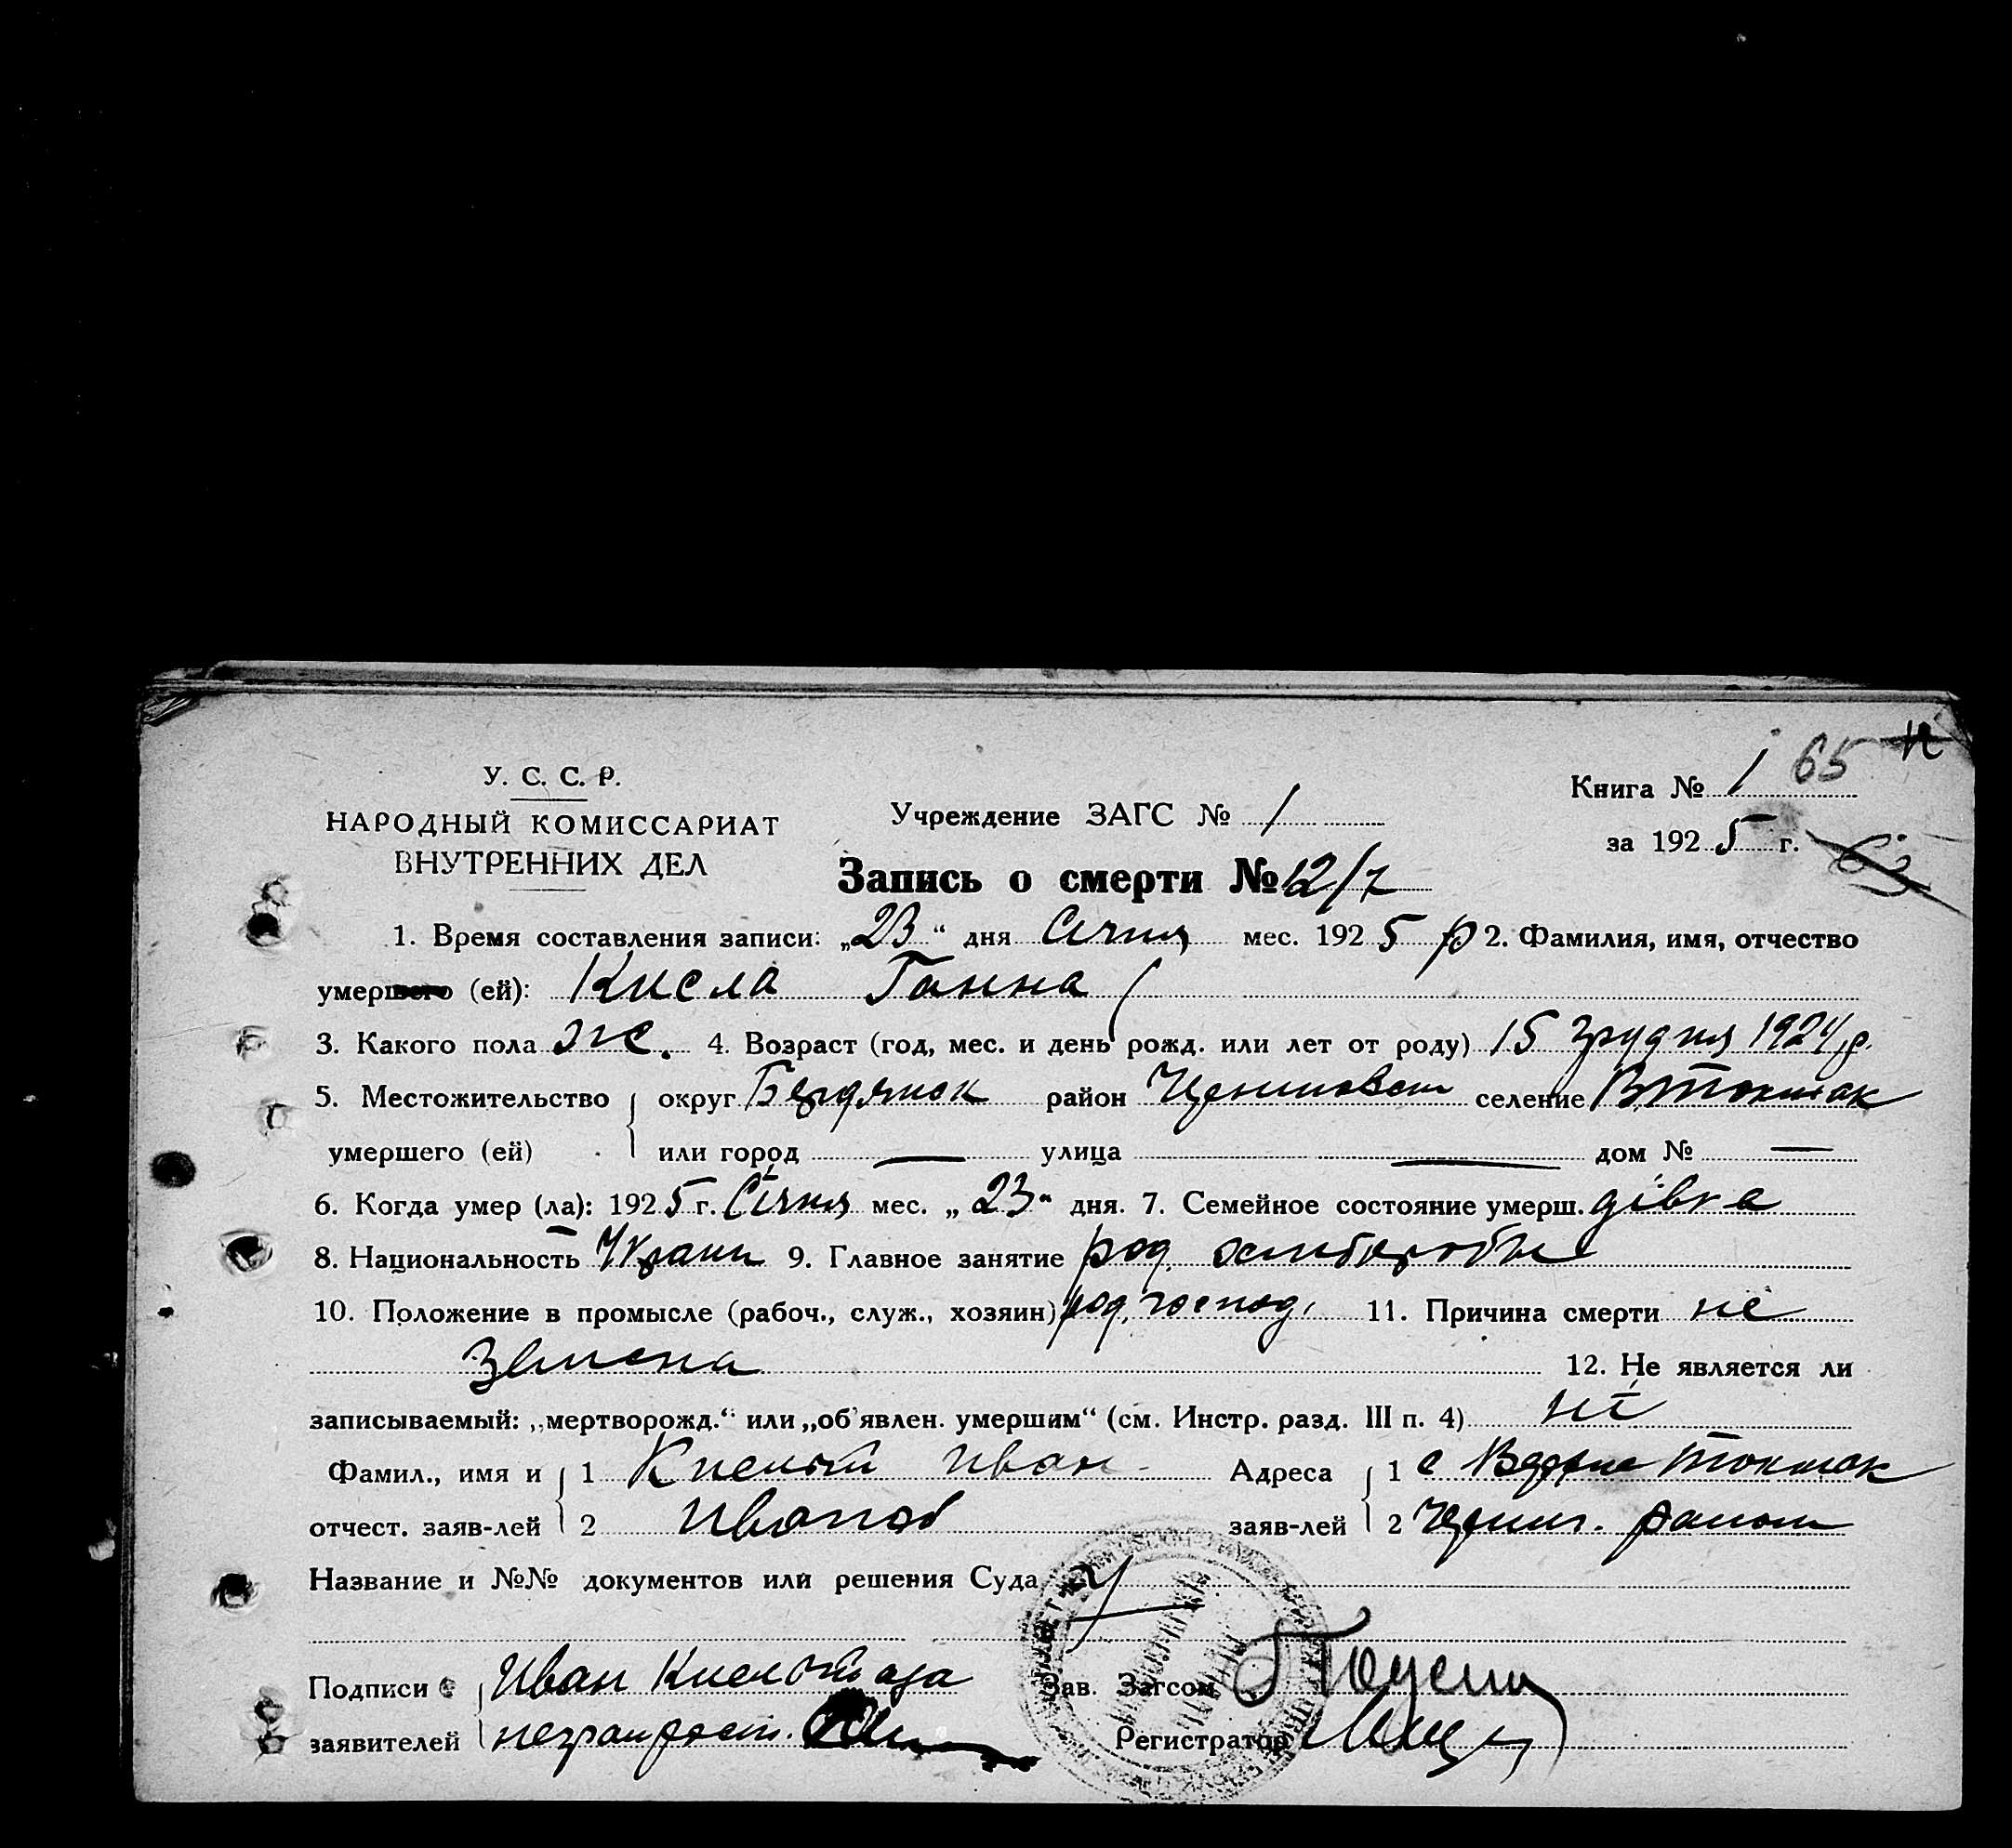 У. С. С. Р.
НАРОДНЫЙ КОМИССАРИАТ
ВНУТРЕННИХ ДЕЛ
Учреждение ЗАГС № 1
Книга № 1 65
за 1925 г.
Запись о смерти № 12/7
1. Время составления записи: „23“ дня Січня мес. 1925 р 2. Фамилия, имя, отчество
умершего (ей): Кисла Ганна
3. Какого пола ж. 4. Возраст (год, мес. и день рожд. или лет от роду) 15 Грудня 1924 р.
5. Местожительство округ Бердянск район селение В Токмак
умершего (ей) или город — улица — дом № —
6. Когда умер (ла): 1925 г. Січня мес. „23“ дня. 7. Семейное состояние умерш. дівка
8. Национальность Украин 9. Главное занятие род. хлибороби
10. Положение в промысле (рабоч., служ., хозяин) род. господ. 11. Причина смерти не
звисна 12. Не является ли
записываемый: „мертворожд.“ или „об'явлен. умершим“ (см. Инстр. разд. III п. 4) ні
Фамил., имя и 1 Кислый Иван Адреса 1 с Токмак
отчест. заяв-лей 2 Иванов заяв-лей 2 район
Название и №№ документов или решения Суда
Подписи Иван Кислый Зав. Загсом
заявителей Регистратор